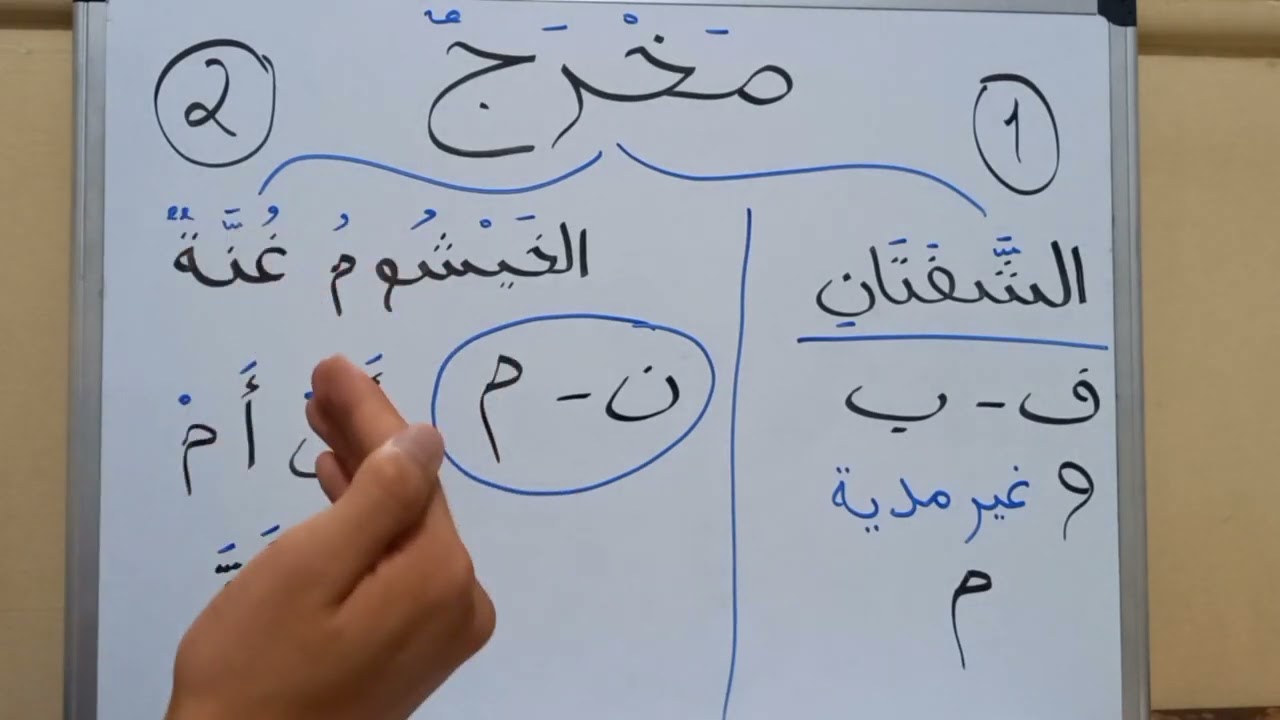 مَخْرَجٌ
1
2
الشَّفَتَانِ
ف - ب
و غير مدية
م
الخَيْشُومُ غُنَّةٌ
ن - م
أَمْ